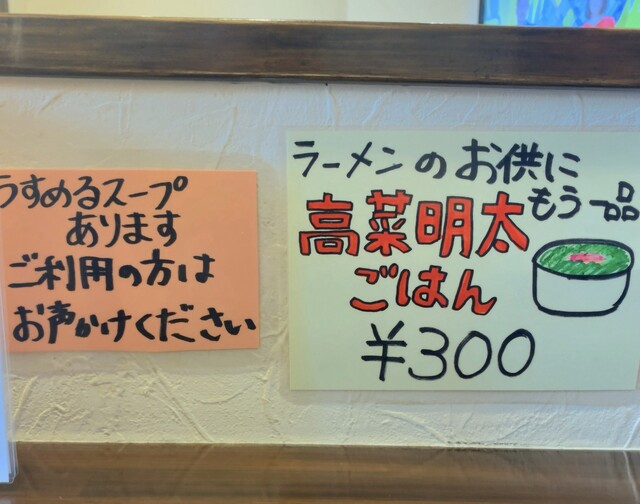 うすめるスープ
あります
ご利用の方は
お声かけください
ラーメンのお供に
もう一品
高菜明太
ごはん
¥300